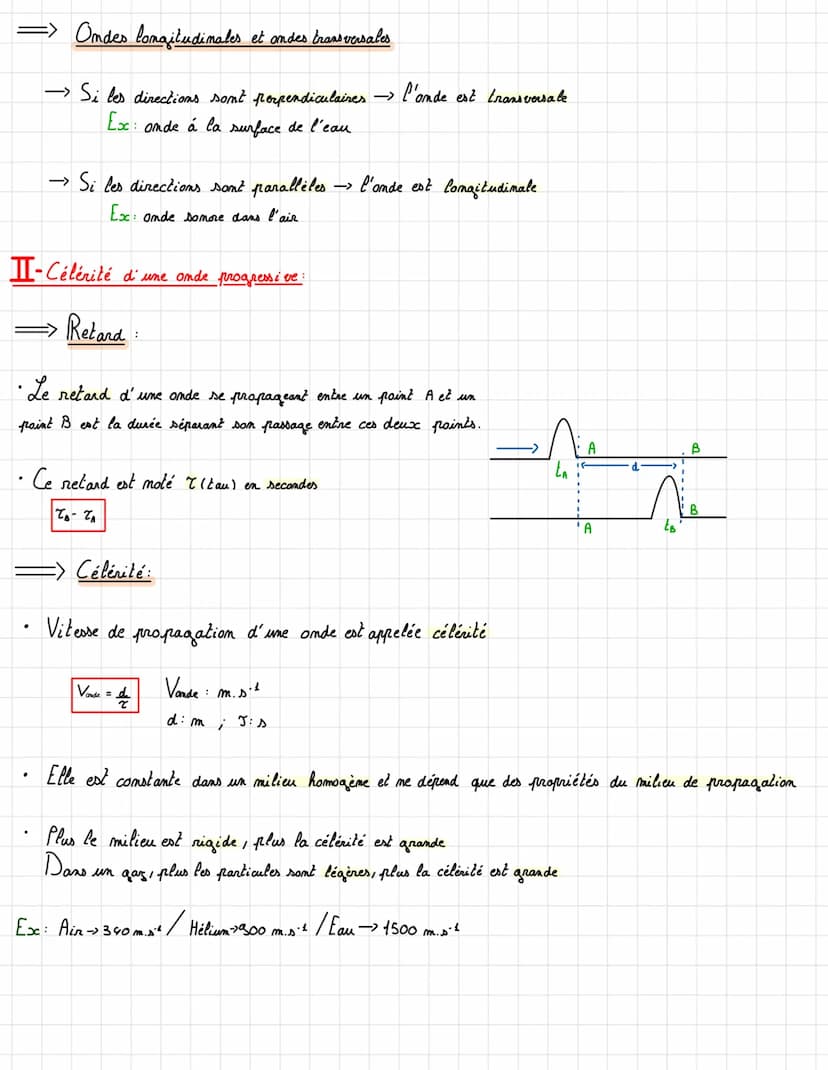 ⟹ Ondes longitudinales et ondes transversales
→ Si les directions sont perpendiculaires → l'onde est transversale
Ex : onde á la surface de l'eau
→ Si les directions sont parallèles → l'onde est longitudinale
Ex : onde sonore dans l'air
II - Célérité d'une onde progressive :
⟹ Retard :
• Le retard d'une onde se propageant entre un point A et un
point B est la durée séparant son passage entre ces deux points.
• Ce retard est noté τ (tau) en secondes
τB - τA
A
B
tA
d
A
tB
B
⟹ Célérité :
• Vitesse de propagation d'une onde est appelée célérité
Vonde = d/τ
Vonde : m.s⁻¹
d : m ; τ : s
• Elle est constante dans un milieu homogène et ne dépend que des propriétés du milieu de propagation
• Plus le milieu est rigide, plus la célérité est grande
Dans un gaz, plus les particules sont légères, plus la célérité est grande
Ex : Air → 340 m.s⁻¹ / Hélium → 900 m.s⁻¹ / Eau → 1500 m.s⁻¹